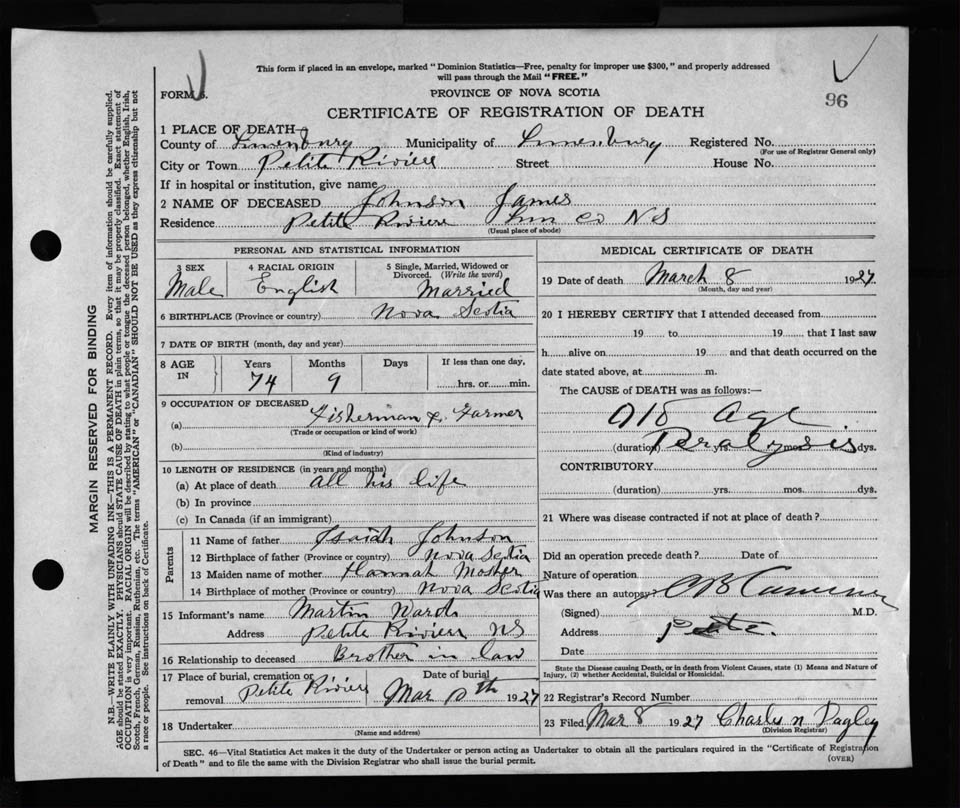 This form if placed in an envelope, marked "Dominion Statistics—Free, penalty for improper use $300," and properly addressed
will pass through the Mail "FREE."
FORM 6.
PROVINCE OF NOVA SCOTIA
96
CERTIFICATE OF REGISTRATION OF DEATH
1 PLACE OF DEATH—
County of Lunenburg Municipality of Lunenburg Registered No.
(For use of Registrar General only)
City or Town Petite Riviere Street House No.
If in hospital or institution, give name
2 NAME OF DECEASED Johnson James
Residence Petite Riviere Lun Co NS
(Usual place of abode)
PERSONAL AND STATISTICAL INFORMATION
3 SEX 4 RACIAL ORIGIN 5 Single, Married, Widowed or
Divorced. (Write the word)
Male English Married
6 BIRTHPLACE (Province or country) Nova Scotia
7 DATE OF BIRTH (month, day and year)
8 AGE IN Years Months Days If less than one day,
74 9 hrs. or min.
9 OCCUPATION OF DECEASED
(a) Fisherman & Farmer
(Trade or occupation or kind of work)
(b)
(Kind of industry)
10 LENGTH OF RESIDENCE (in years and months)
(a) At place of death all his life
(b) In province
(c) In Canada (if an immigrant)
Parents
11 Name of father Isaiah Johnson
12 Birthplace of father (Province or country) Nova Scotia
13 Maiden name of mother Hannah Mosher
14 Birthplace of mother (Province or country) Nova Scotia
15 Informant's name Martin
Address Petite Riviere NS
16 Relationship to deceased Brother in law
17 Place of burial, cremation or removal Date of burial
Petite Riviere Mar 10th 1927
18 Undertaker
(Name and address)
MEDICAL CERTIFICATE OF DEATH
19 Date of death March 8 1927
(Month, day and year)
20 I HEREBY CERTIFY that I attended deceased from
19 to 19 that I last saw
h alive on 19 and that death occurred on the
date stated above, at m.
The CAUSE of DEATH was as follows:—
Old Age
Peralysis
(duration) yrs. mos. dys.
CONTRIBUTORY
(duration) yrs. mos. dys.
21 Where was disease contracted if not at place of death?
Did an operation precede death? Date of
Nature of operation
Was there an autopsy
(Signed) M.D.
Address Petite.
Date
State the Disease causing Death, or in death from Violent Causes, state (1) Means and Nature of
Injury, (2) whether Accidental, Suicidal or Homicidal.
22 Registrar's Record Number
23 Filed Mar 8 1927 Charles N Pagley
(Division Registrar)
SEC. 46—Vital Statistics Act makes it the duty of the Undertaker or person acting as Undertaker to obtain all the particulars required in the "Certificate of Registration
of Death" and to file the same with the Division Registrar who shall issue the burial permit.
(OVER)
MARGIN RESERVED FOR BINDING
N.B.—WRITE PLAINLY WITH UNFADING INK—THIS IS A PERMANENT RECORD. Every item of information should be carefully supplied.
AGE should be stated EXACTLY. PHYSICIANS should STATE CAUSE OF DEATH in plain terms, so that it may be properly classified. Exact statement of
OCCUPATION is very important. RACIAL ORIGIN will be described by stating to what people or tongue the deceased person belonged, whether English, Irish,
Scotch, French, German, Russian, Ruthenian, etc. The terms "AMERICAN" or "CANADIAN" SHOULD NOT BE USED as they express citizenship but not
a race or people. See instructions on back of Certificate.